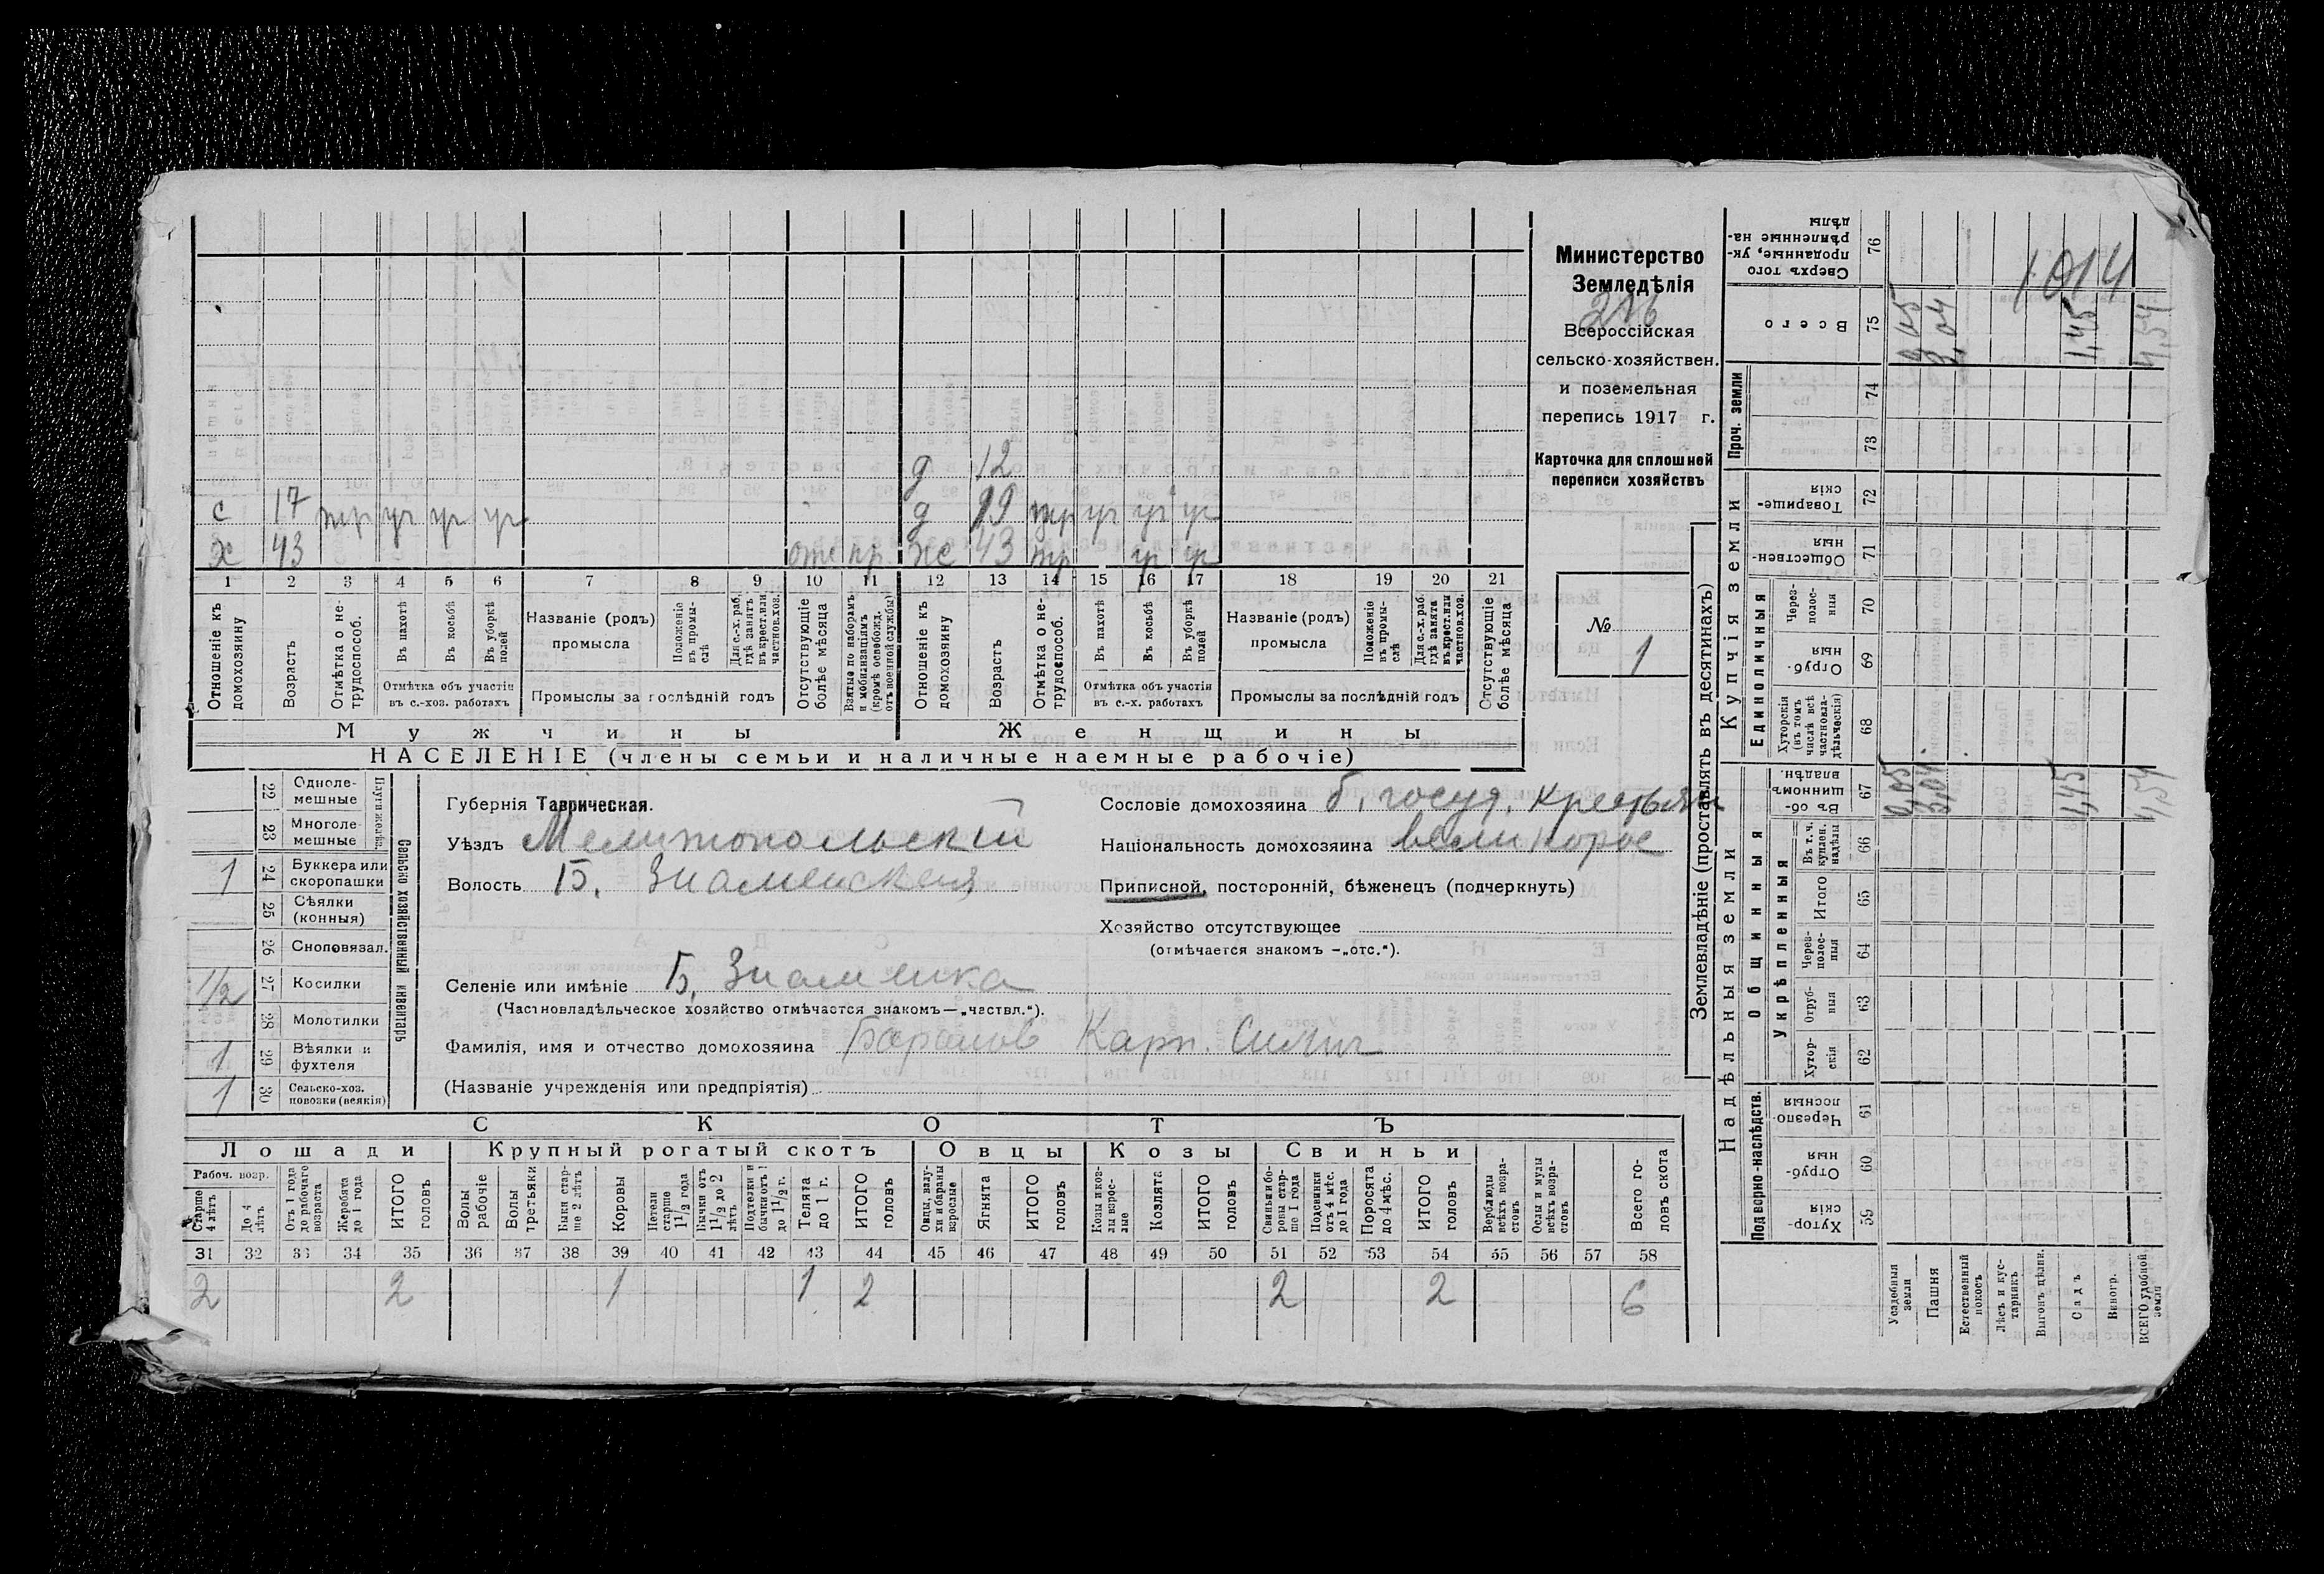 Министерство
Земледѣлія
Всероссійская
сельско-хозяйствен.
и поземельная
перепись 1917 г.
Карточка для сплошней
переписи хозяйствъ
№
1
д 12
с 17 тр уч уч уч д 19 тр уч уч уч
х 43 отс пр. ж 43 тр уч уч
1 2 3 4 5 6 7 8 9 10 11 12 13 14 15 16 17 18 19 20 21
Отношеніе къ домохозяину
Возрастъ
Отмѣтка о нетрудоспособ.
Въ пахотѣ
Въ косьбѣ
Въ уборкѣ полей
Отмѣтка объ участіи въ с.-хоз. работахъ
Названіе (родъ) промысла
Положеніе въ промыслѣ
Для с.-х. раб. гдѣ занятъ въ крест. или частнов. хоз.
Промыслы за послѣдній годъ
Отсутствующіе болѣе мѣсяца
Взятые по наборамъ и мобилизаціямъ (кромѣ освобожд. отъ военной службы)
Отношеніе къ домохозяину
Возрастъ
Отмѣтка о нетрудоспособ.
Въ пахотѣ
Въ косьбѣ
Въ уборкѣ полей
Отмѣтка объ участіи въ с.-х. работахъ
Названіе (родъ) промысла
Положеніе въ промыслѣ
Для с.-х. раб. гдѣ занята въ крест. или частнов. хоз.
Промыслы за послѣдній годъ
Отсутствующіе болѣе мѣсяца
Мужчины Женщины
НАСЕЛЕНІЕ (члены семьи и наличные наемные рабочіе)
Сельско хозяйственный инвентарь
22 Однолемешные
23 Многолемешные
1 24 Буккера или скоропашки
25 Сѣялки (конныя)
26 Сноповязал.
1/2 27 Косилки
28 Молотилки
1 29 Вѣялки и фухтеля
1 30 Сельско-хоз. повозки (всякія)
Губернія Таврическая.
Уѣздъ Мелитопольскій
Волость Б. Знаменская
Селеніе или имѣніе Б. Знаменка
(Частновладѣльческое хозяйство отмѣчается знакомъ—„частвл.“).
Фамилія, имя и отчество домохозяина Баранов Карп. Силич
(Названіе учрежденія или предпріятія)
Сословіе домохозяина б. госуд. крестьян
Національность домохозяина великорос
Приписной, посторонній, бѣженецъ (подчеркнуть)
Хозяйство отсутствующее
(отмѣчается знакомъ –„отс.“).
СКОТЪ
Лошади Крупный рогатый скотъ Овцы Козы Свиньи
Рабоч. возр.
Старше 4 лѣтъ
До 4 лѣтъ
Отъ 1 года до рабочаго возраста
Жеребята до 1 года
ИТОГО головъ
Волы рабочіе
Волы третьяки
Быки старше 2 лѣтъ
Коровы
Нетели старше 1 1/2 года
Бычки отъ 1 1/2 до 2 лѣтъ
Подтелки и бычки отъ 1 до 1 1/2 г.
Телята до 1 г.
ИТОГО головъ
Овцы, валухи и бараны взрослые
Ягнята
ИТОГО головъ
Козы и козлы взрослые
Козлята
ИТОГО головъ
Свиньи и боровы старше 1 года
Подсвинки отъ 4 мѣс. до 1 года
Поросята до 4 мѣс.
ИТОГО головъ
Верблюды всѣхъ возрастовъ
Ослы и мулы всѣхъ возрастовъ
Всего головъ скота
31 32 33 34 35 36 37 38 39 40 41 42 43 44 45 46 47 48 49 50 51 52 53 54 55 56 57 58
2 2 1 1 2 2 2 6
Землевладѣніе (проставлять въ десятинахъ)
Надѣльныя земли
Купчія земли
Проч. земли
Подворно-наслѣдств.
Общинныя
Укрѣпленныя
Единоличныя
76 Сверхъ того проданные, укрѣпленные надѣлы
75 Всего
74
73
72 Товарищескія
71 Общественныя
70 Черезполосныя
69 Отрубныя
68 Хуторскія (въ томъ числѣ всѣ частновладѣльческія)
67 Въ общинномъ владѣн.
66 Въ т. ч. куплен. надѣлы
65 Итого
64 Черезполосныя
63 Отрубныя
62 Хуторскія
61 Черезполосныя
60 Отрубныя
59 Хуторскія
1014
0,05 3,04 1,45 4,54
0,05 3,04 1,45 4,54
Усадебныя земли
Пашня
Естественный покосъ
Лѣсъ и кустарникъ
Выгонъ цѣлин.
Садъ
Виногр.
ВСЕГО удобной земли